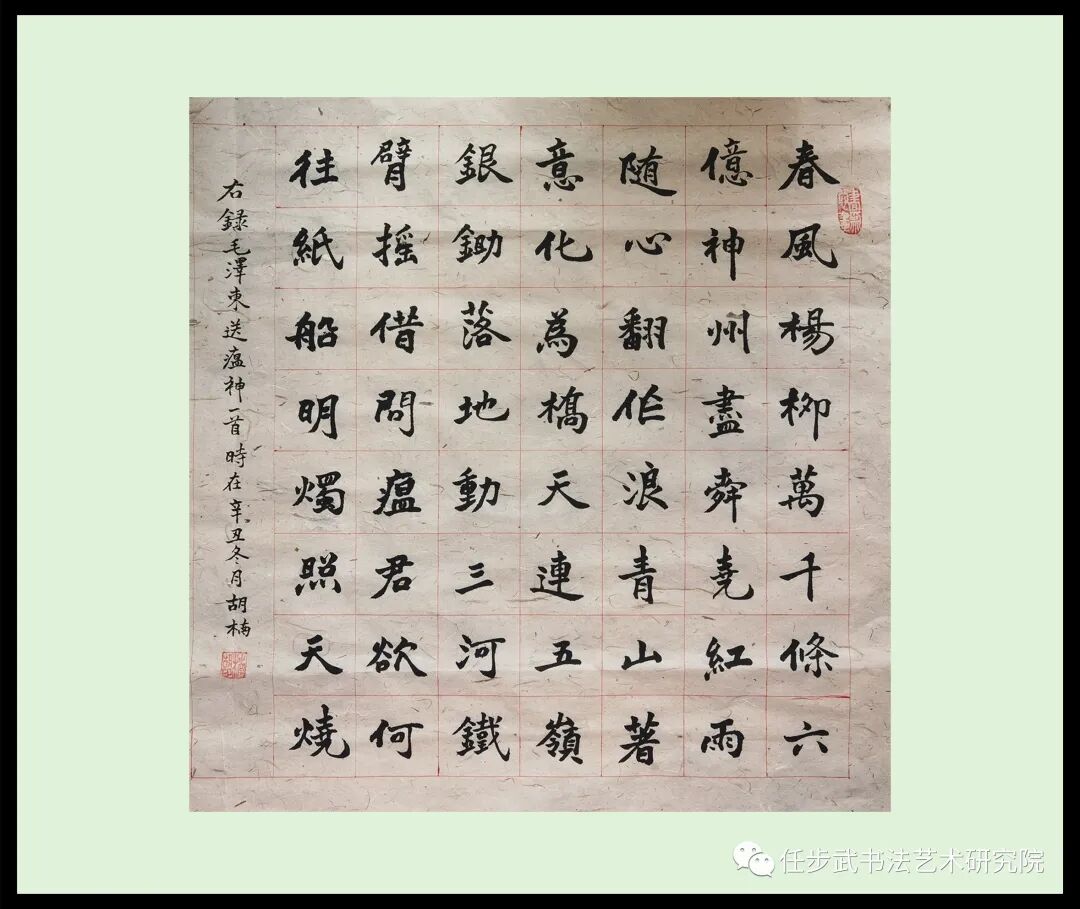 春風楊柳萬千條六
億神州盡舜堯紅雨
随心翻作浪青山著
意化為橋天連五嶺
銀鋤落地動三河鐵
臂摇借問瘟君欲何
往紙船明燭照天燒
右録毛澤東送瘟神一首時在辛丑冬月胡楠
任步武书法艺术研究院